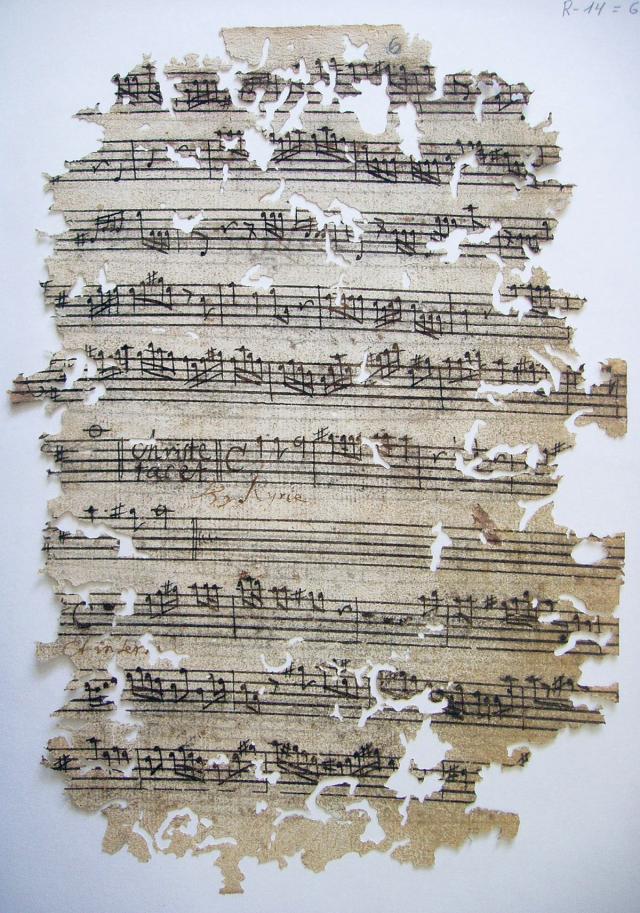 R-14 = 6
6
christe
tacet
Kyrie
Et in terr